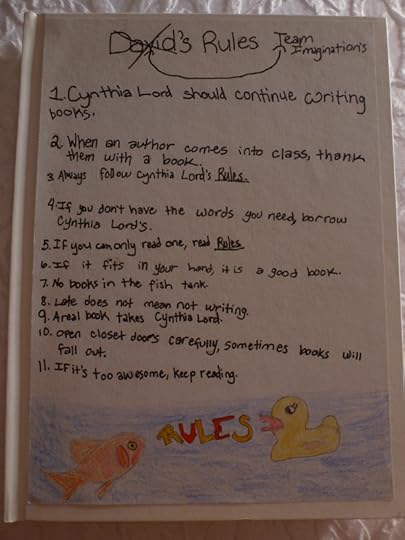 David's Rules Team
Imagination's
1. Cynthia Lord should continue writing
books.
2. When an author comes into class, thank
them with a book.
3. Always follow Cynthia Lord's Rules.
4. If you don't have the words you need, borrow
Cynthia Lord's.
5. If you can only read one, read Rules
6. If it fits in your hand, it is a good book.
7. No books in the fish tank.
8. Late does not mean not writing.
9. A real book takes Cynthia Lord.
10. Open closet doors carefully, sometimes books will
fall out.
11. If it's too awesome, keep reading.
RULES